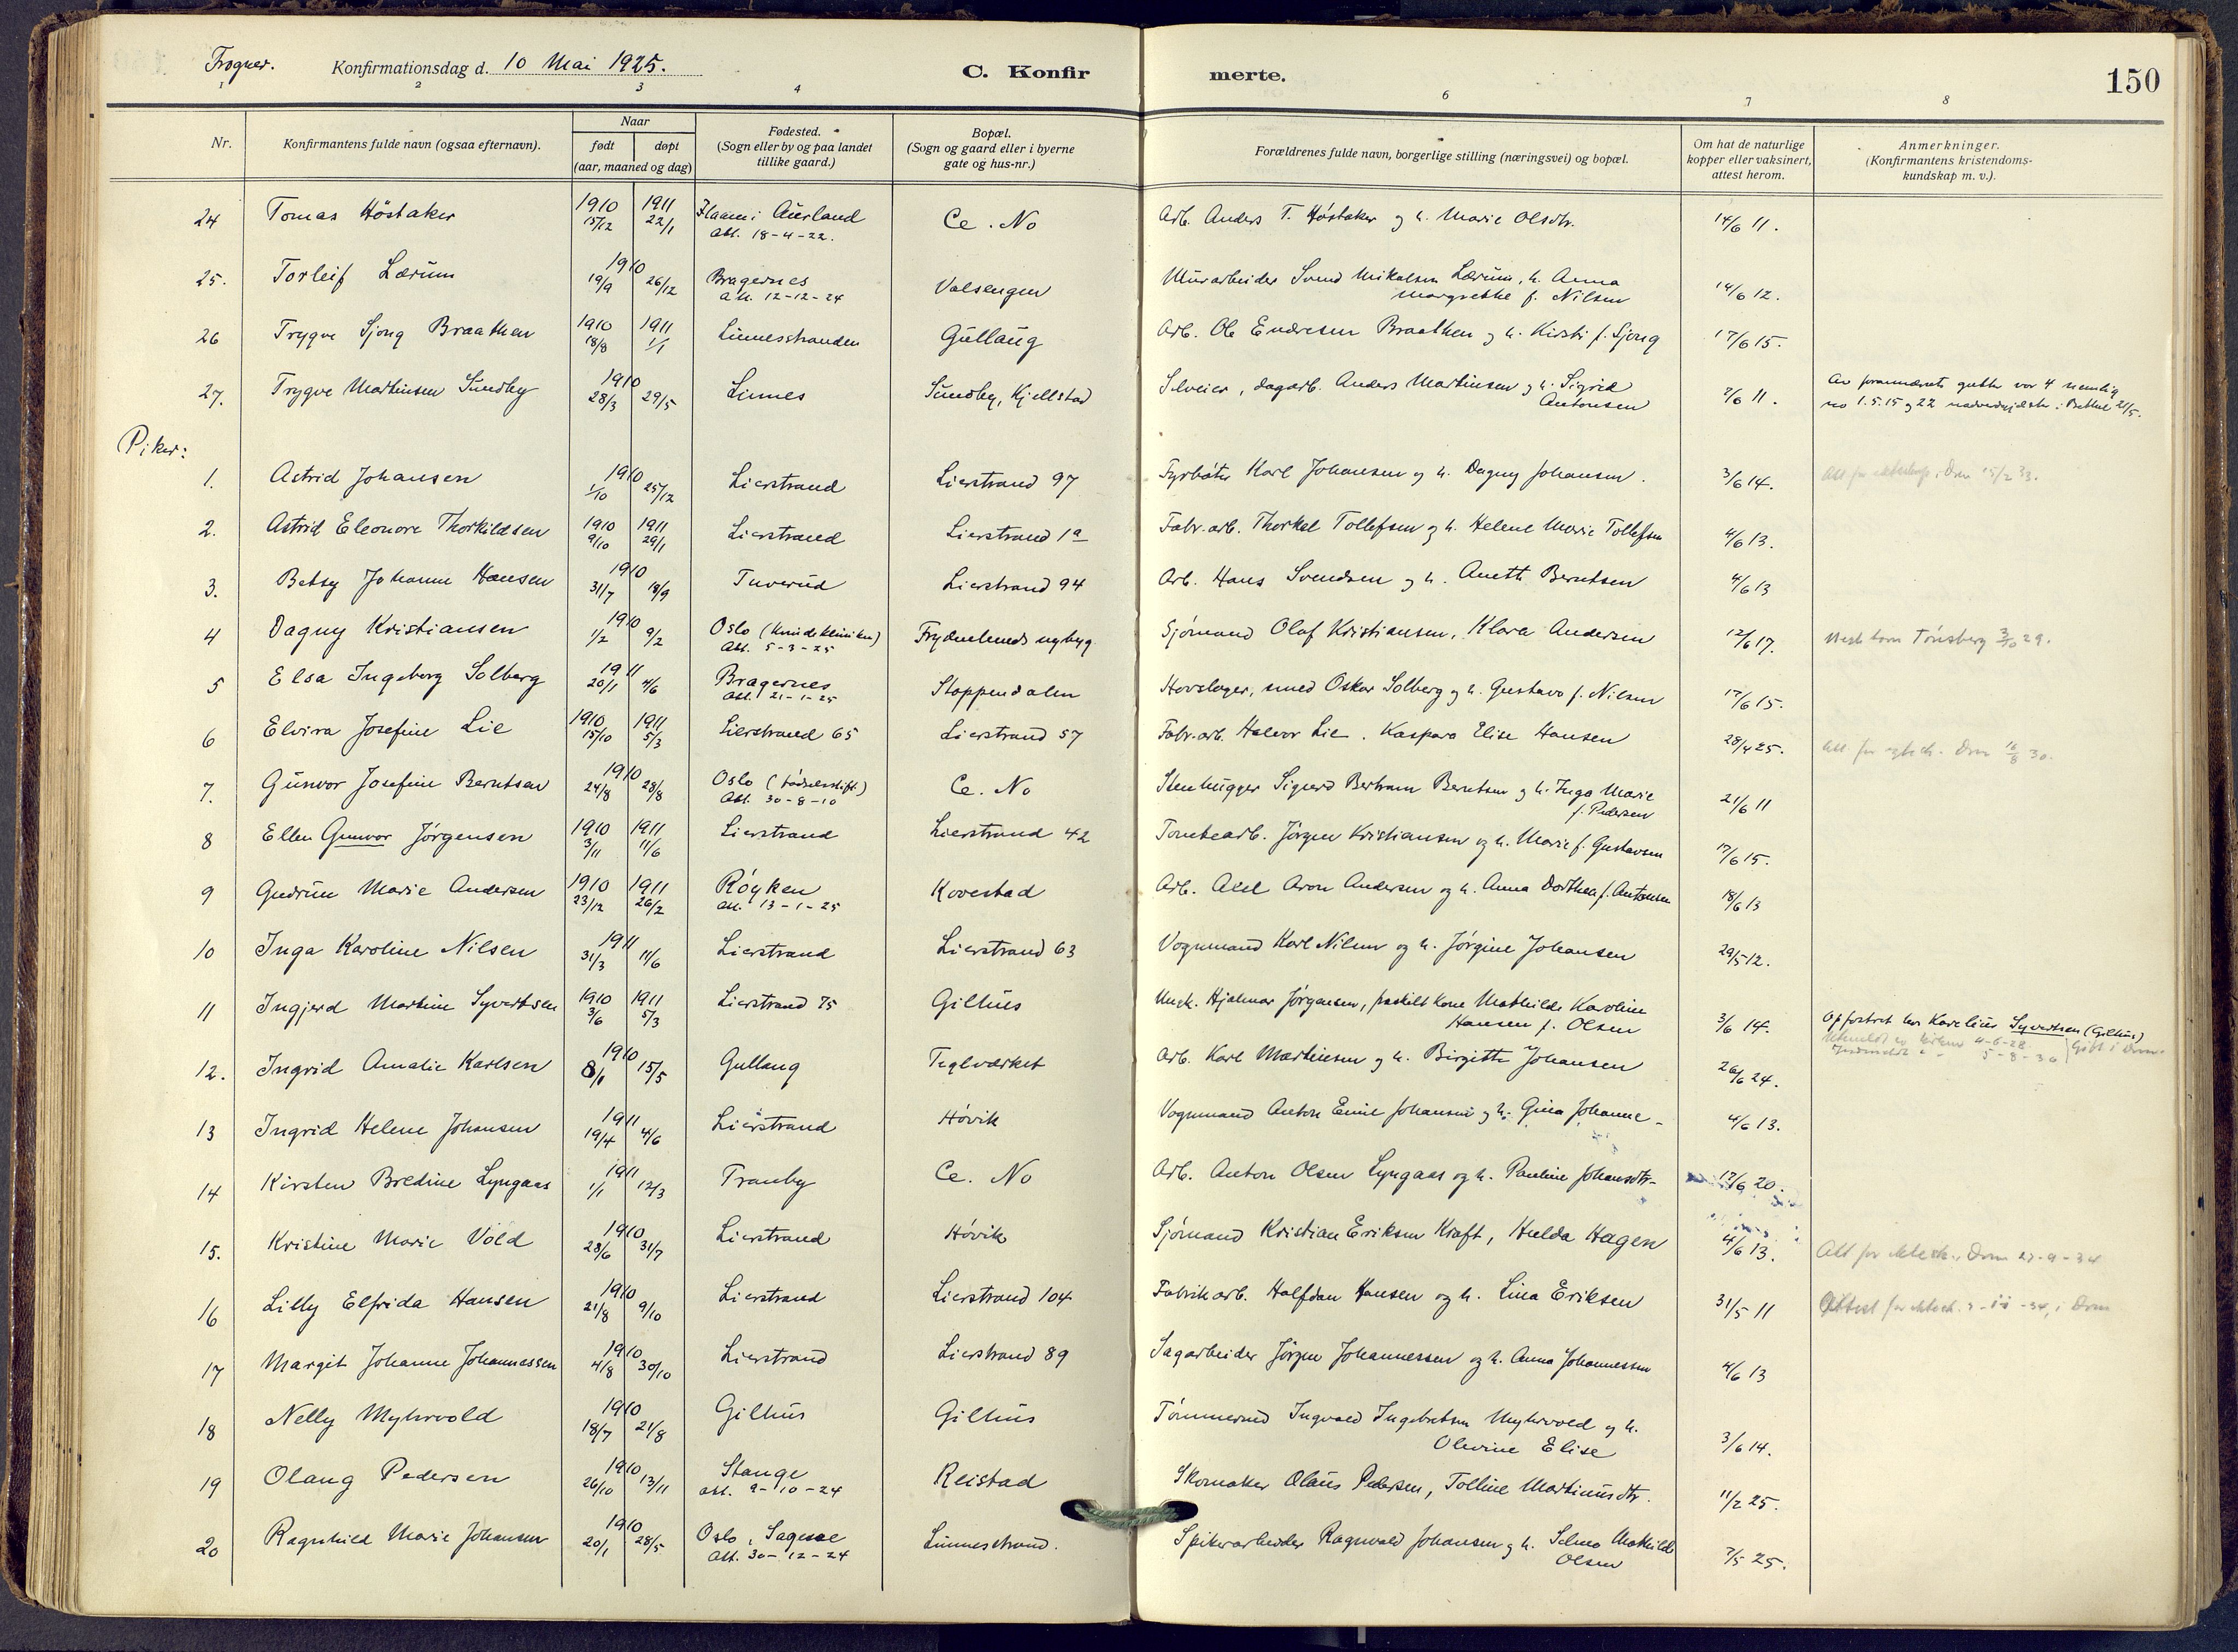 Frogner. Konfirmationsdag d. 10 Mai 1925. C. Konfir merte. 150
1 2 3 4 6 7 8
Nr. Konfirmantens fulde navn (ogsaa efternavn). Naar født døpt (aar, maaned og dag) Fødested. (Sogn eller by og paa landet tillike gaard.) Bopæl. (Sogn og gaard eller i byerne gate og hus-nr.) Forældrenes fulde navn, borgerlige stilling (næringsvei) og bopæl. Om hat de naturlige kopper eller vaksinert, attest herom. Anmerkninger. (Konfirmantens kristendoms-kundskap m. v.).
24 Tomas Höstaker 1910 15/12 1911 22/1 Flaam i Aurland Att. 18-4-22. Ce. No Arb. Anders T. Høstaker og h. Marie Olsdtr. 14/6 11.
25. Torleif Lærum 1910 19/9 26/12 Bragernes Att. 12-12-24 Valsengen Murarbeider Svend Mikalsen Lærum, h. Anna Margrethe f. Nilsen 14/6 12.
26 Trygve Sjong Braathen 1910 18/8 1911 1/1 Linnesstranden Gullaug Arb. Ole Endresen Braathen og h. Kirsti f. Sjong 17/6 15.
27. Trygve Martinsen Sundby 1910 28/3 29/5 Linnes Sundby, Kjellstad Selveier, dagarb. Anders Martinsen og h. Sigrid Antonsen 7/6 11. Av forannævnte gutter var 4 nemlig no 1. 5. 15 og 22 21/5.
Piker:
1. Astrid Johansen 1910 1/10 25/12 Lierstrand Lierstrand 97 Fyrbøter Karl Johansen og h. Dagny Johansen. 3/6 14. Att for i Drm 15/2 33.
2. Astrid Eleonore Thorkildsen 1910 9/10 1911 29/1 Lierstrand Lierstrand 1a Fabr. arb. Thorkel Tollefsen og h. Helene Marie Tollefsen 4/6 13.
3. Betsy Johanne Hansen 1910 31/7 18/9 Tuverud Lierstrand 94 Arb. Hans Svendsen og h. Anette Berntsen 4/6 13
4 Dagny Kristiansen 1910 1/2 9/2 Oslo (Kvindekliniken) Att. 5-3-25 Frydenlunds nybyg. Sjømand Olaf Kristiansen, Klara Andersen 12/6 17. Tønsberg 3/10 29.
5 Elsa Ingeborg Solberg 1911 20/1 4/6 Bragernes Att. 21-1-25 Stoppendalen Hovslager, smed Oskar Solberg og h. Gustava f. Nilsen 17/6 15.
6 Elvira Josefine Lie 1910 15/10 1911 5/3 Lierstrand 65 Lierstrand 57 Fabr. arb. Halvor Lie. Kaspara Elise Hansen 28/4 25. Att. for Drm 16/8 30.
7. Gunvor Josefine Berntsen 1910 24/8 28/8 Oslo (Fødselsstift.) Att. 30-8-10 Ce. No Stenhugger Sigurd Bertram Berntsen og h. Inga Marie f. Pedersen 21/6 11
8 Ellen Gunvor Jørgensen 1910 3/11 1911 11/6 Lierstrand Lierstrand 42 Tomtearb. Jørgen Kristiansen og h. Marie f. Gustavsen 17/6 15.
9 Gudrun Marie Andersen 1910 23/12 1911 26/2 Røyken Att. 13-1-25 Kovestad Arb. Axel Aron Andersen og h. Anna Dorthea f. Antonsen 18/6 13
10 Inga Karoline Nilsen 1911 31/3 11/6 Lierstrand Lierstrand 63 Vognmand Karl Nilsen og h. Jørgine Johansen 29/5 12.
11 Ingjerd Martine Syvertsen 1910 3/6 1911 5/3 Lierstrand 75 Gilhus Hjalmar Jørgensen, fraskilt kone Mathilde Karoline Hansen f. Olsen 3/6 14. Opfostret hos Karelius Syvertsen (Gilhus) Utmeldt av kirken 4-6-28 Indmeldt 5-8-36 Gift i Drm.
12. Ingrid Amalie Karlsen 1910 8/1 15/5 Gullaug Teglverket Arb. Karl Martinsen og h. Birgitte Johansen 26/6 24.
13 Ingrid Helene Johansen 1911 19/4 4/6 Lierstrand Høvik Vognmand Anton Emil Johansen og h. Gina Johanne - 4/6 13.
14 Kirsten Bredine Lyngaas 1911 1/1 12/3 Tranby Ce. No Arb. Anton Olsen Lyngaas og h. Pauline Johansdtr. 17/6 20.
15. Kristine Marie Vold 1910 28/6 31/7 Lierstrand Høvik Sjømand Kristian Eriksen Kraft, Hulda Hagen 4/6 13. Att for ektesk. Drm 27-9-34
16 Lilly Elfrida Hansen 1910 21/8 9/10 Lierstrand Lierstrand 104 Fabrikarb. Halfdan Hansen og h. Lina Eriksen 31/5 11 Attest for ektesk. 3-11-34, i Drm
17 Margit Johanne Johannessen 1910 4/8 30/10 Lierstrand Lierstrand 89 Sagarbeider Jørgen Johannessen og h. Anna Johannessen 4/6 13
18 Nelly Myhrvold 1910 18/7 21/8 Gilhus Gilhus Tømmermd Ingvald Ingebretsen Myhrvold og h. Olevine Elise 3/6 14.
19 Olaug Pedersen 1910 26/10 13/11 Stange Att. 9-10-24 Reistad Skomaker Olaus Pedersen, Tolline Martinusdtr. 11/2 25.
20 Ragnhild Marie Johansen 1910 20/1 28/5 Oslo, Sagene Att. 30-12-24 Linnesstrand. Spikerarbeider Ragnvald Johansen og h. Selma Mathilde Olsen 7/5 25.